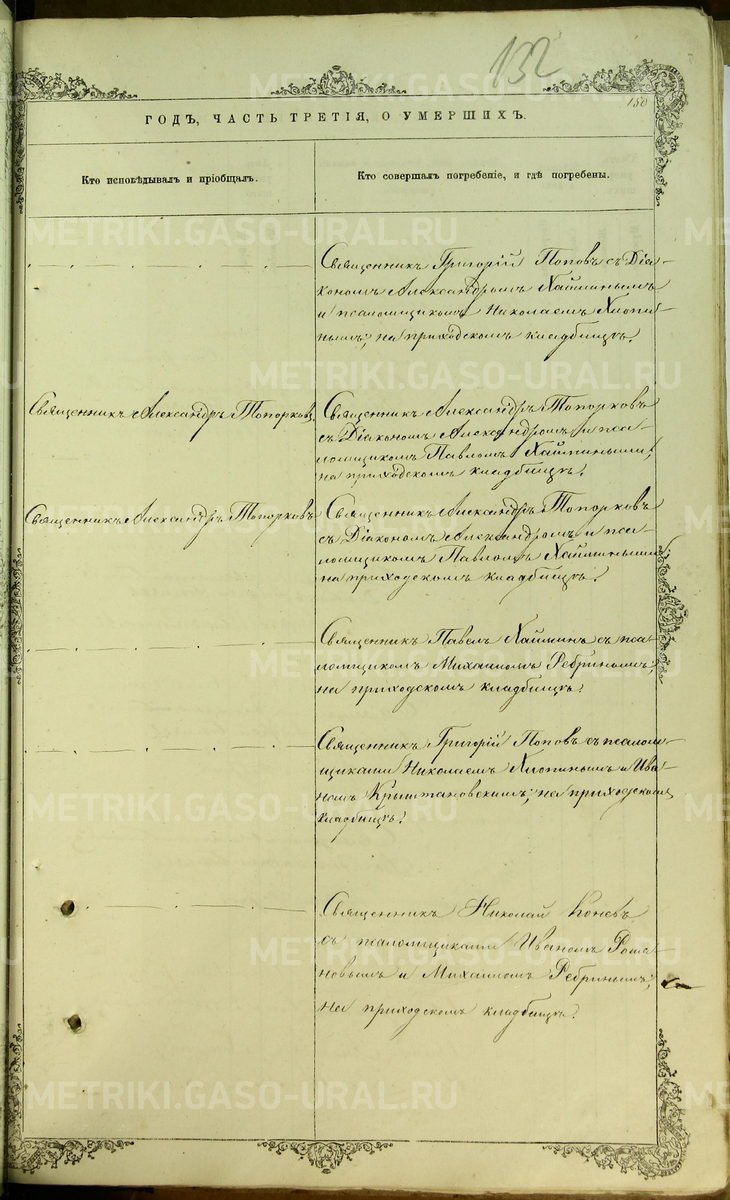 132
150
ГОДЪ, ЧАСТЬ ТРЕТІЯ, О УМЕРШИХЪ.
Кто исповѣдывалъ и пріобщалъ.
Кто совершалъ погребеніе, и гдѣ погребены.
Священникъ Григорій Поповъ съ Діа-
кономъ Александромъ Хайминымъ
и псаломщикомъ Николаемъ Хлопи-
нымъ; на приходскомъ кладбищѣ.
Священникъ Александръ Топорковъ.
Священникъ Александръ Топорковъ
съ Діакономъ Александромъ и пса-
ломщикомъ Павломъ Хайміными;
на приходскомъ кладбищѣ.
Священникъ Александръ Топорковъ
Священникъ Александръ Топорковъ
съ Діакономъ Александромъ и пса-
ломщикомъ Павломъ Хайміными
на приходскомъ кладбищѣ.
Священникъ Павелъ Хайминъ съ пса-
ломщикомъ Михаиломъ Ребринымъ;
на приходскомъ кладбищѣ.
Священникъ Григорій Поповъ съ псалом-
щиками Николаемъ Хлопинымъ и Ива-
номъ Крыштановскимъ; на приходскомъ
кладбищѣ.
Священникъ Николай Коневъ
съ псаломщиками Иваномъ Рома-
новымъ и Михаиломъ Ребринымъ;
на приходскомъ кладбищѣ.
METRIKI.GASO-URAL.RU